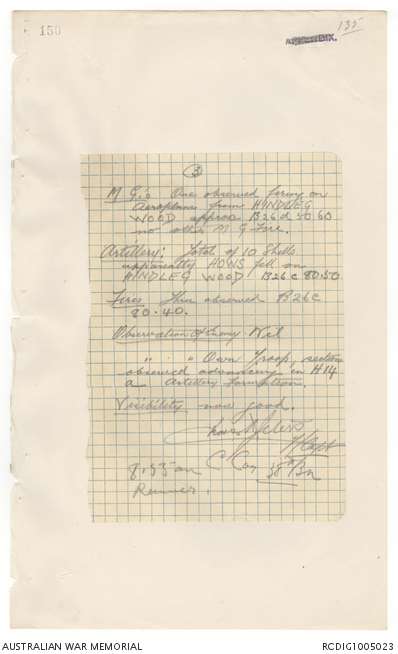 150
135
APPENDIX.
3
M G's One observed firing on
Aeroplanes from HINDLEG
WOOD approx B26d 50 60
no other M G fire.
Artillery: Total of 10 Shells
apparently HOWS fell on
HINDLEG WOOD B26c 80.50
Fires observed B26c
80.40.
Observation of Enemy Nil
" " Own Troop, section
observed advancing in H14
a Artillery formation.
Visibility now good.
Peters
Capt
8.55 am C Coy 38th Bn
Runner.
AUSTRALIAN WAR MEMORIAL
RCDIG1005023